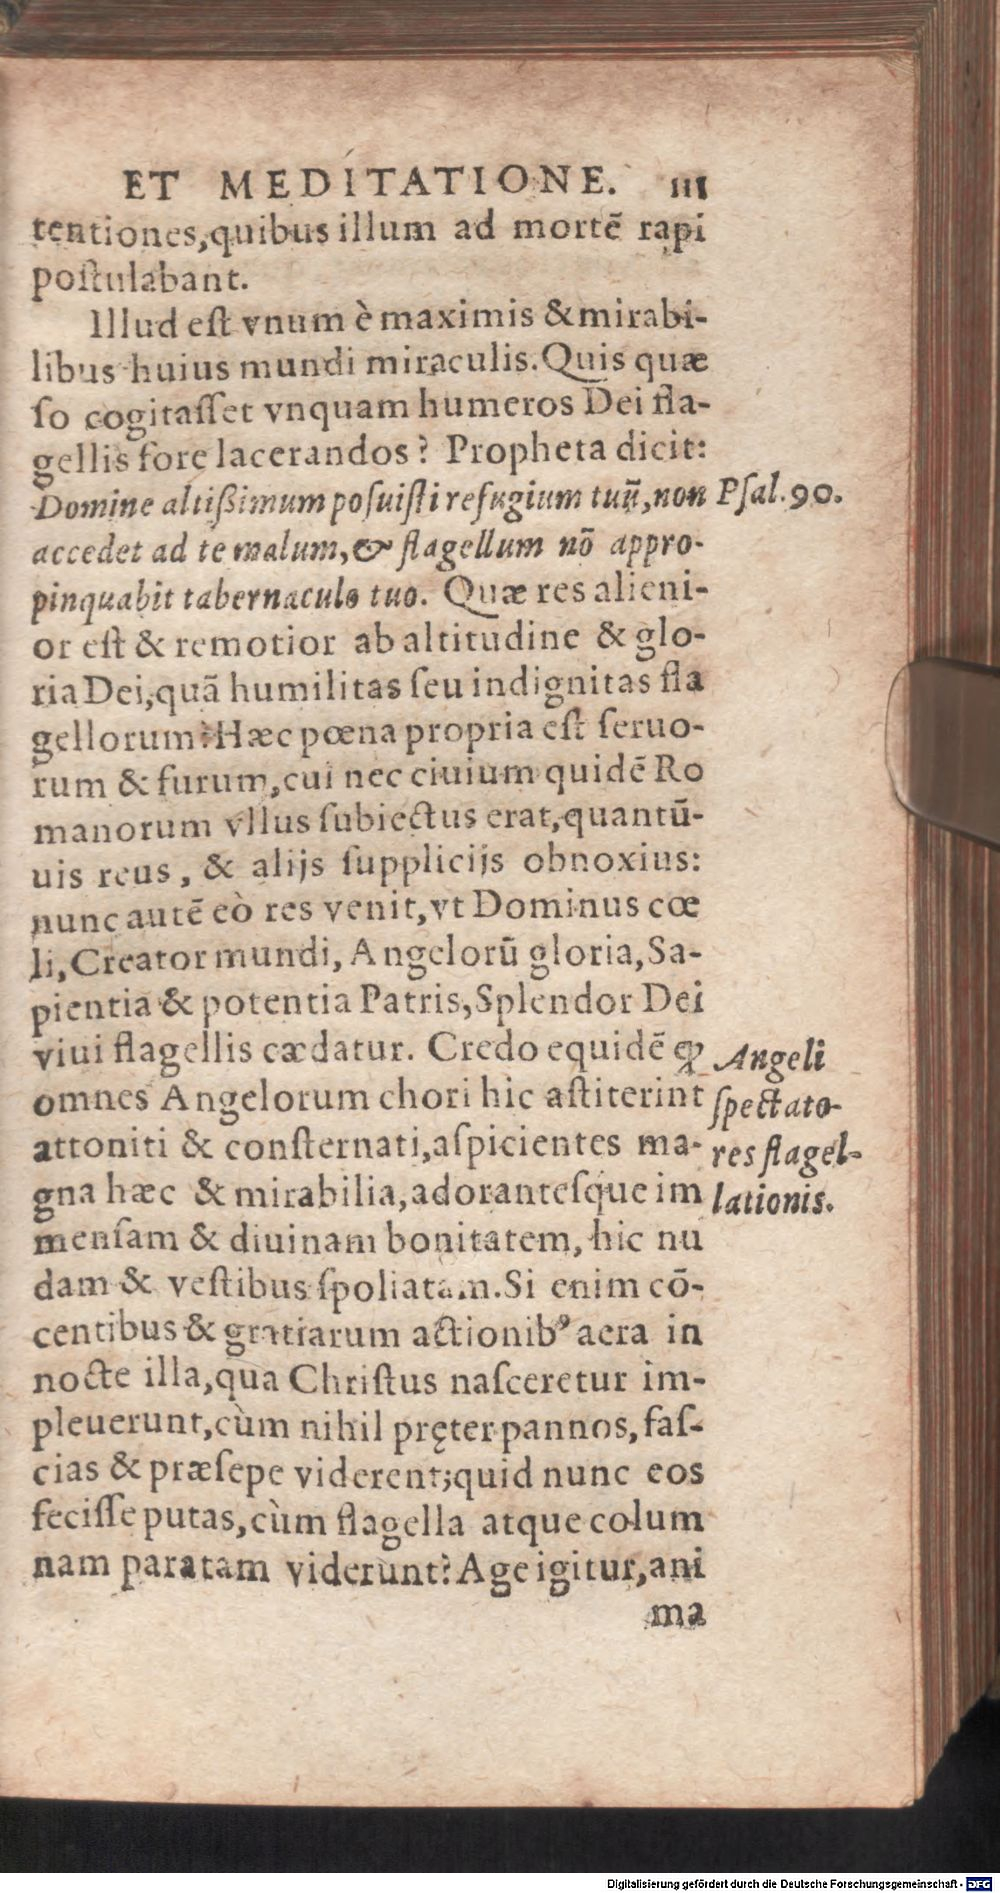 ET MEDITATIONE. 111
tentiones,quibus illum ad mortē rapi
poſtulabant.
Illud eſt vnum è maximis & mirabi-
libus huius mundi miraculis. Quis quæ
ſo cogitaſſet vnquam humeros Dei fla-
gellis fore lacerandos? Propheta dicit:
Domine altißimum poſuiſti refugium tuū,non
Pſal.90.
accedet ad te malum,& flagellum nō appro-
pinquabit tabernaculo tuo. Quæ res alieni-
or eſt & remotior ab altitudine & glo-
ria Dei,quā humilitas ſeu indignitas fla
gellorum? Hæc pœna propria eſt ſeruo-
rum & furum,cui nec ciuium quidē Ro
manorum vllus ſubiectus erat,quantū-
uis reus, & alijs ſupplicijs obnoxius:
nunc autē eò res venit,vt Dominus cœ
li,Creator mundi, Angelorū gloria,Sa-
pientia & potentia Patris,Splendor Dei
viui flagellis cædatur. Credo equidē ꝙ
omnes Angelorum chori hic aſtiterint
attoniti & conſternati,aſpicientes ma-
gna hæc & mirabilia,adoranteſque im
menſam & diuinam bonitatem, hic nu
dam & veſtibus ſpoliatam. Si enim cō-
centibus & gratiarum actionibꝰ aera in
nocte illa,qua Chriſtus naſceretur im-
pleuerunt,cùm nihil pręter pannos, faſ-
cias & præſepe viderent;quid nunc eos
feciſſe putas,cùm flagella atque colum
nam paratam viderunt? Age igitur,ani
ma
Angeli
ſpectato-
res flagel-
lationis.
Digitalisierung gefördert durch die Deutsche Forschungsgemeinschaft - DFG